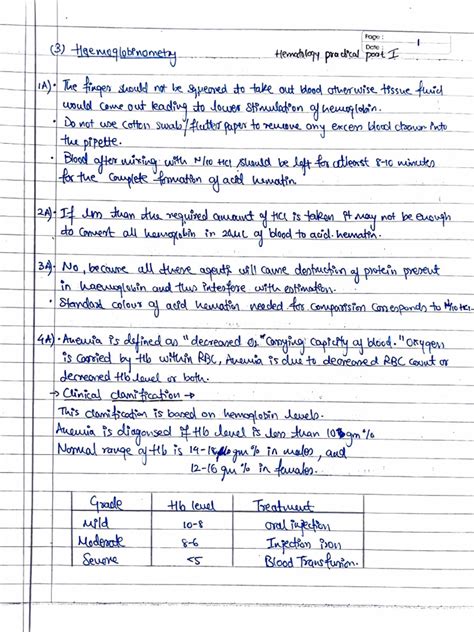 Page: 1
Date:
(3) Haemoglobinometry
Hematology practical part I
1A) • The finger should not be squeezed to take out blood otherwise tissue fluid
would come out leading to lower stimulation of hemoglobin.
• Do not use cotton swab/flutter paper to remove any excess blood drawn into
the pipette.
• Blood after mixing with N/10 HCl should be left for atleast 8-10 minutes
for the complete formation of acid hematin.
2A) • If less than the required amount of HCl is taken it may not be enough
to convert all hemoglobin in of blood to acid hematin.
3A) • No, because all these agents will cause destruction of protein present
in haemoglobin and thus interfere with estimation.
• Standard colour of acid hematin needed for comparision corresponds to N/10 HCl.
4A) • Anemia is defined as "decreased O2 "carrying capicity of blood." Oxygen
is carried by Hb within RBC, Anemia is due to decreased RBC count or
decreased Hb level or both.
→ Clinical classification →
This classification is based on hemoglobin levels.
Anemia is diagonsed if Hb level is less than 10 gm%
Normal range of Hb is 14-18 gm% in males, and
12-16 gm% in females.
Grade Hb level Treatment
Mild 10-8 Oral injection
Moderate 8-6 Injection iron
Severe <5 Blood Transfusion.